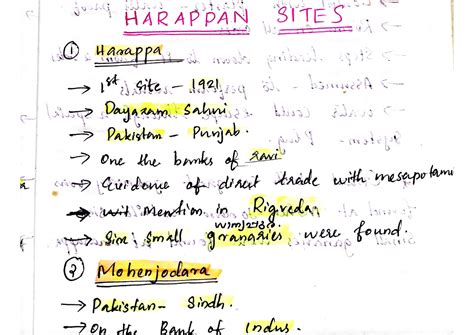 HARAPPAN SITES
① Harappa
→ 1st Site - 1921
→ Dayaram Sahni
→ Pakistan - Punjab.
→ One the banks of ravi
→ Evidence of direct trade with mesapotami
→ Mention in Rigveda
→ Six small granaries were found.
② Mohenjodara
→ Pakistan - Sindh.
→ On the Bank of Indus.